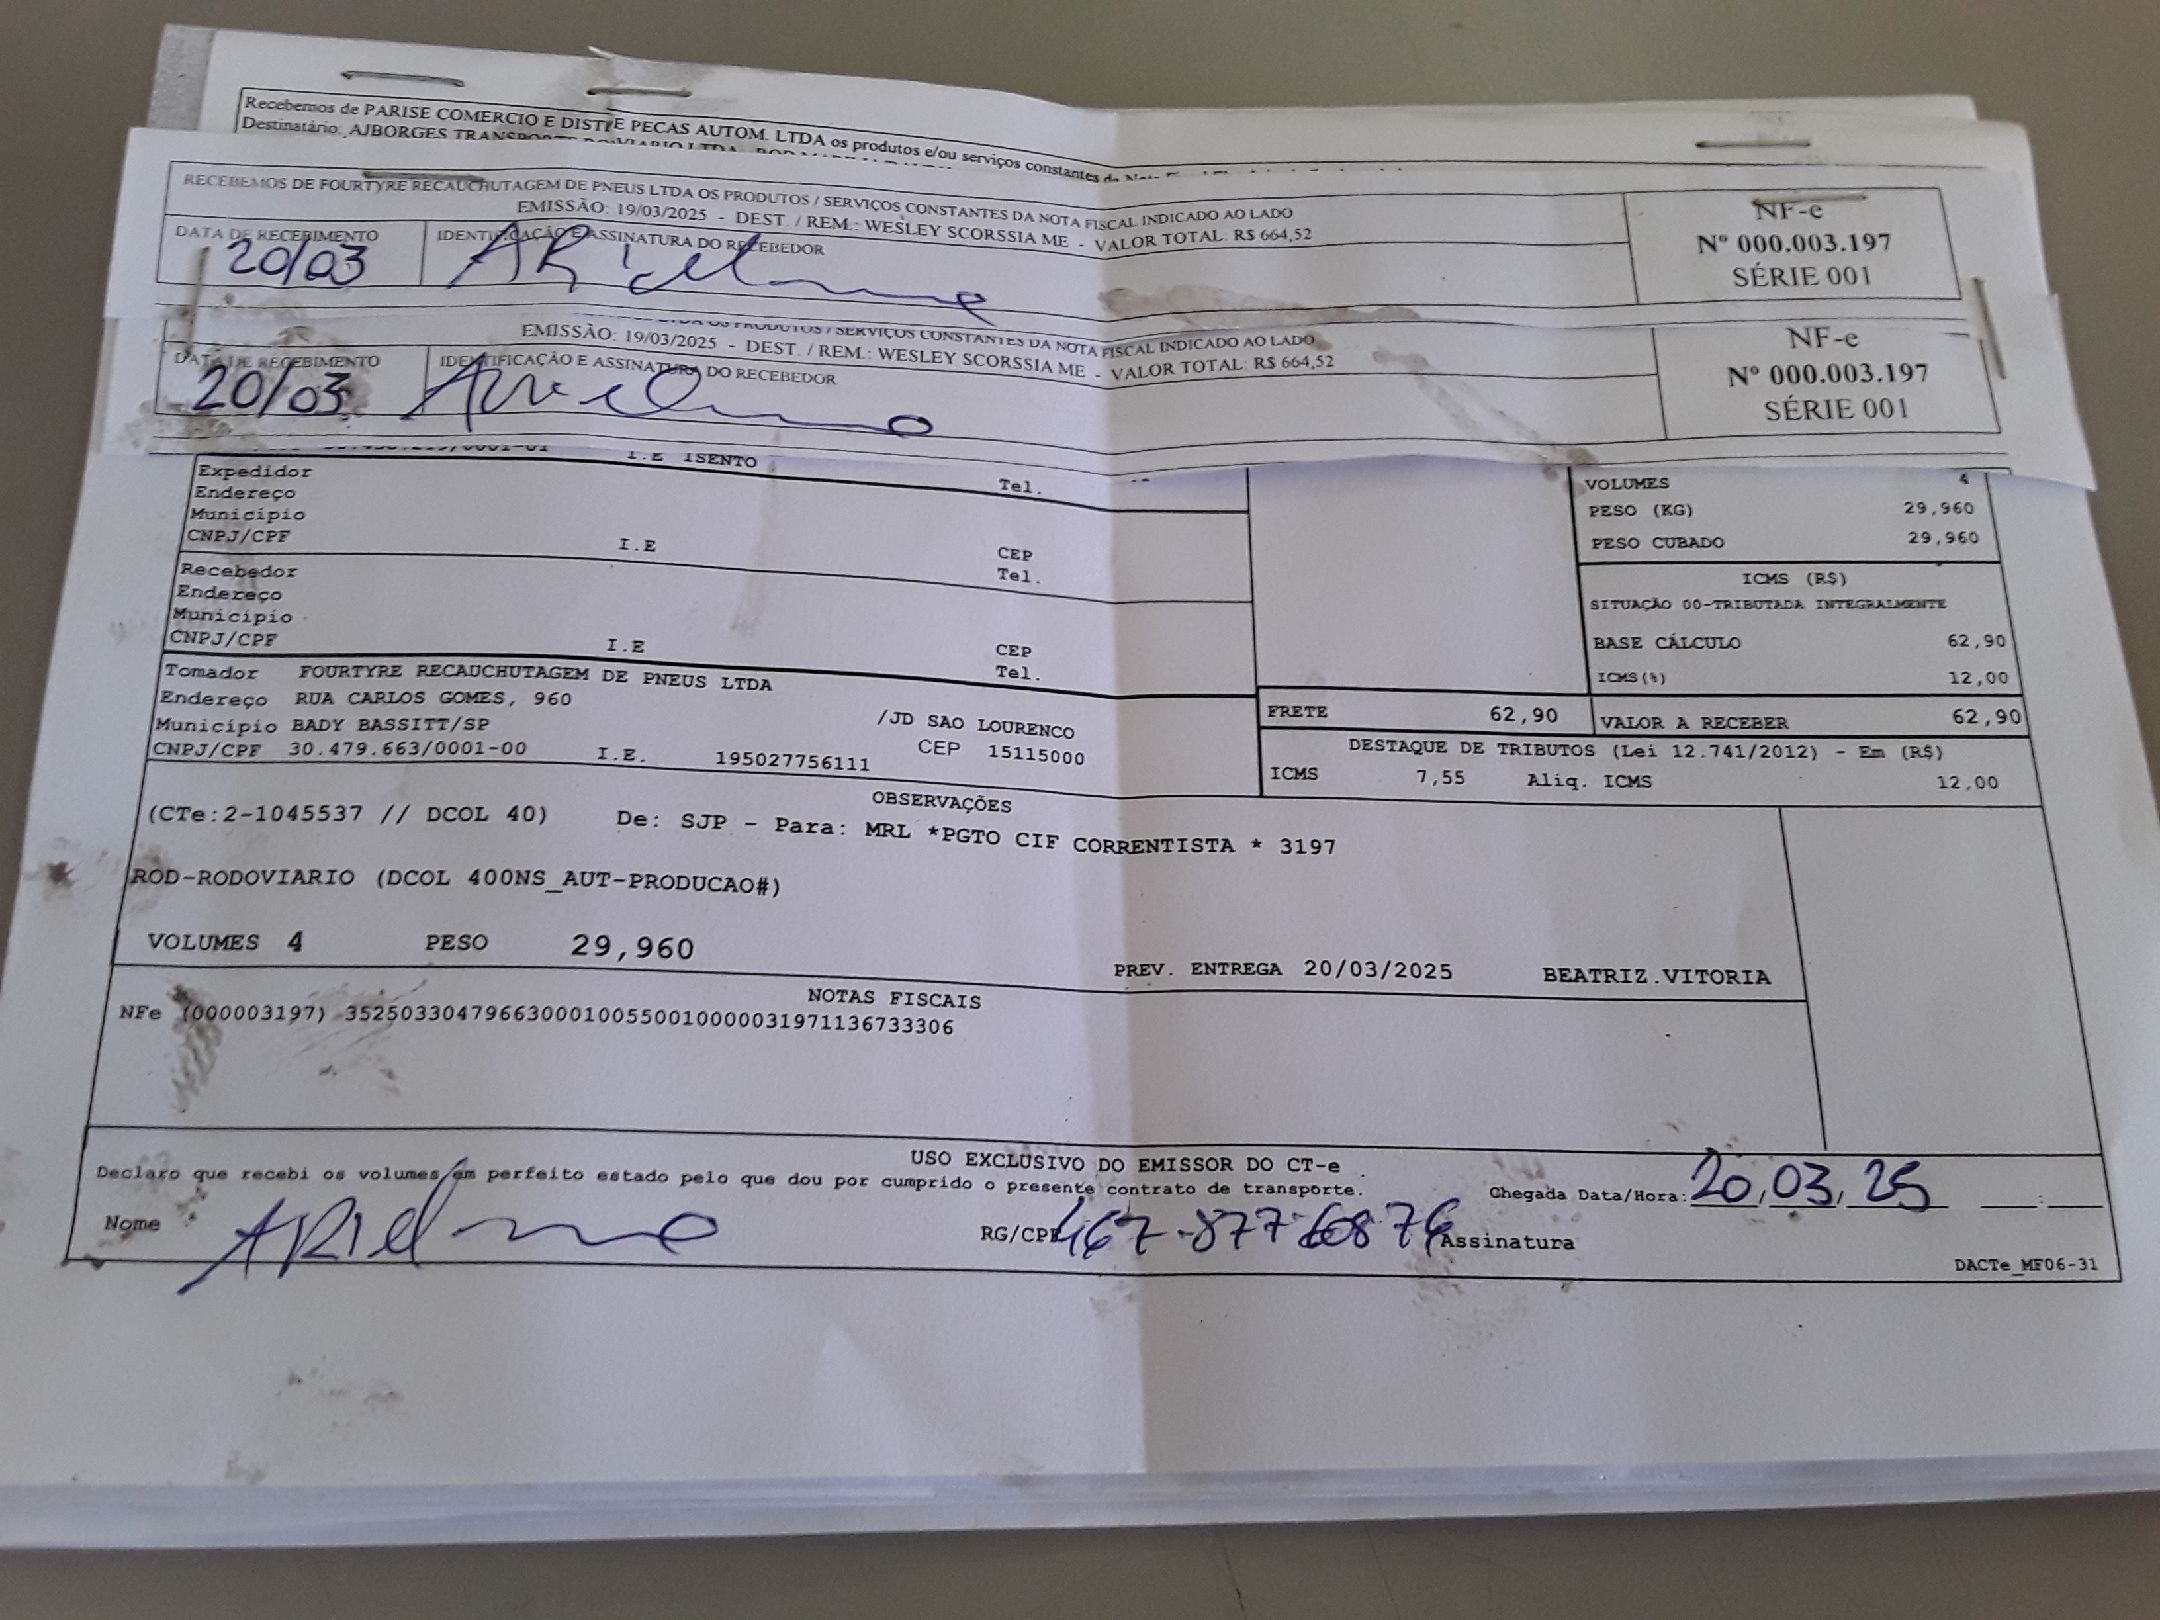 Recebemos de PARISE COMERCIO E DIST E PECAS AUTOM. LTDA os produtos e/ou serviços constantes da
Destinatário: AJBORGES TRANSPORTE
RECEBEMOS DE FOURTYRE RECAUCHUTAGEM DE PNEUS LTDA OS PRODUTOS / SERVIÇOS CONSTANTES DA NOTA FISCAL INDICADO AO LADO
EMISSÃO: 19/03/2025 - DEST. / REM.: WESLEY SCORSSIA ME - VALOR TOTAL: R$ 664,52
NF-e
Nº 000.003.197
SÉRIE 001
DATA DE RECEBIMENTO
20/03
IDENTIFICAÇÃO E ASSINATURA DO RECEBEDOR
OS PRODUTOS / SERVIÇOS CONSTANTES DA NOTA FISCAL INDICADO AO LADO
EMISSÃO: 19/03/2025 - DEST. / REM.: WESLEY SCORSSIA ME - VALOR TOTAL: R$ 664,52
NF-e
Nº 000.003.197
SÉRIE 001
DATA DE RECEBIMENTO
20/03
IDENTIFICAÇÃO E ASSINATURA DO RECEBEDOR
I.E ISENTO
Expedidor Tel.
Endereço
Município
CNPJ/CPF I.E CEP
Recebedor Tel.
Endereço
Município
CNPJ/CPF I.E CEP
Tomador FOURTYRE RECAUCHUTAGEM DE PNEUS LTDA Tel.
Endereço RUA CARLOS GOMES, 960 /JD SAO LOURENCO
Município BADY BASSITT/SP CEP 15115000
CNPJ/CPF 30.479.663/0001-00 I.E. 195027756111
VOLUMES 4
PESO (KG) 29,960
PESO CUBADO 29,960
ICMS (R$)
SITUAÇÃO 00-TRIBUTADA INTEGRALMENTE
BASE CÁLCULO 62,90
ICMS(%) 12,00
FRETE 62,90 VALOR A RECEBER 62,90
DESTAQUE DE TRIBUTOS (Lei 12.741/2012) - Em (R$)
ICMS 7,55 Aliq. ICMS 12,00
OBSERVAÇÕES
(CTe:2-1045537 // DCOL 40) De: SJP - Para: MRL *PGTO CIF CORRENTISTA * 3197
ROD-RODOVIARIO (DCOL 400NS_AUT-PRODUCAO#)
VOLUMES 4 PESO 29,960
PREV. ENTREGA 20/03/2025 BEATRIZ.VITORIA
NOTAS FISCAIS
NFe (000003197) 35250330479663000100550010000031971136733306
USO EXCLUSIVO DO EMISSOR DO CT-e
Declaro que recebi os volumes em perfeito estado pelo que dou por cumprido o presente contrato de transporte.
Chegada Data/Hora: 20/03/25 __:__
Nome
RG/CPF
Assinatura
DACTe_MF06-31